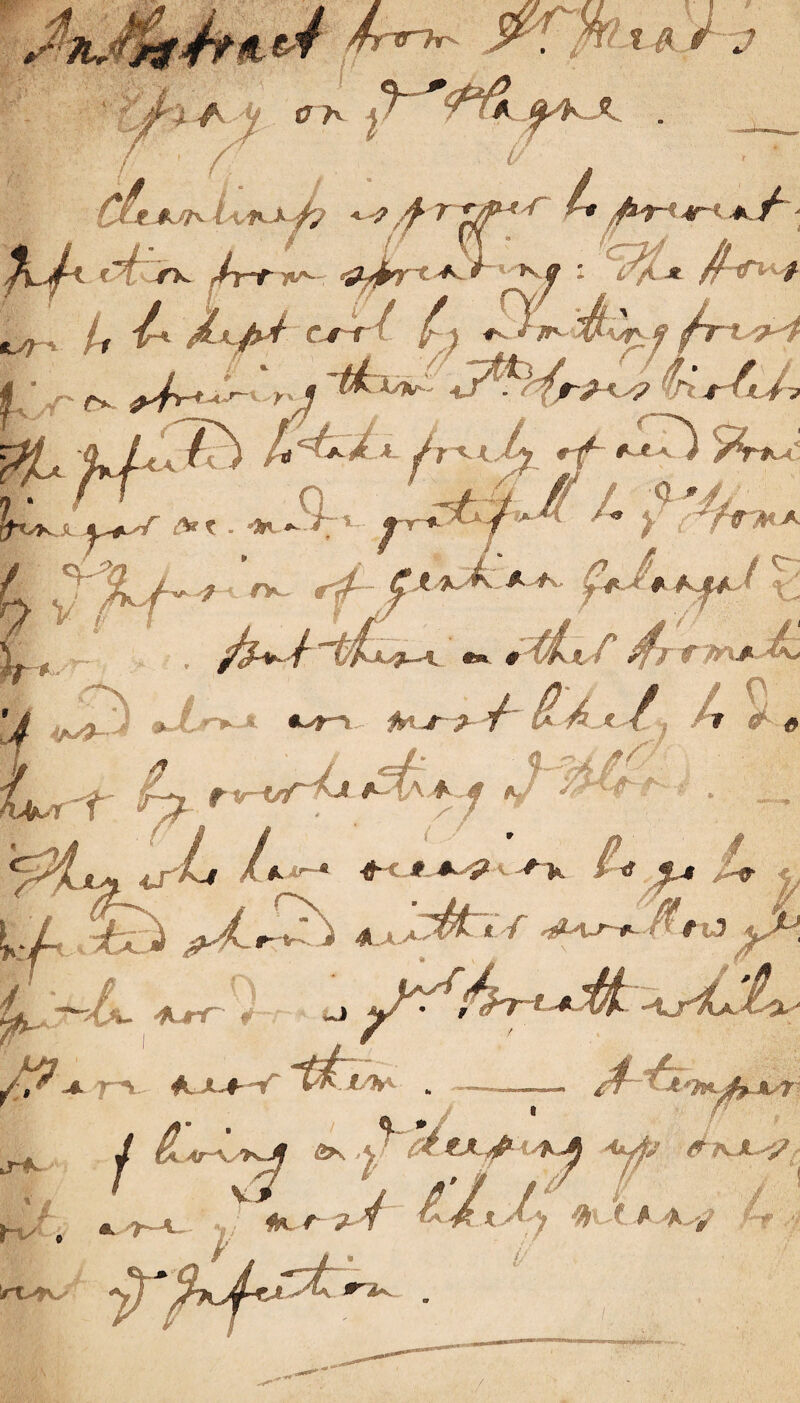 An Abstract from Dr. Mead's
Essay on ye Plague. —
Cleanliness is proper to prevent
Infection from spreading: The Hous
are to be kept cool by admitting fresh
Air & strewing them wth. Roses Violets
The Infected to take freely of acid Frui
Vinegar &c. made gratefull to ye Stoma
by ye Infusion of Gentian Galangal Z
But these & other Aromati
if us'd alone are most likely to do
hurt by overheating ye Blood. —
They who have occasion to go to y
Infected shou'd neither swallow yeir
Spitle nor draw yeir. Breath whils
yey are near them. — A temper
way of living & ye keeping up one's
rits are ye most likely means to p
vent ye Infection.